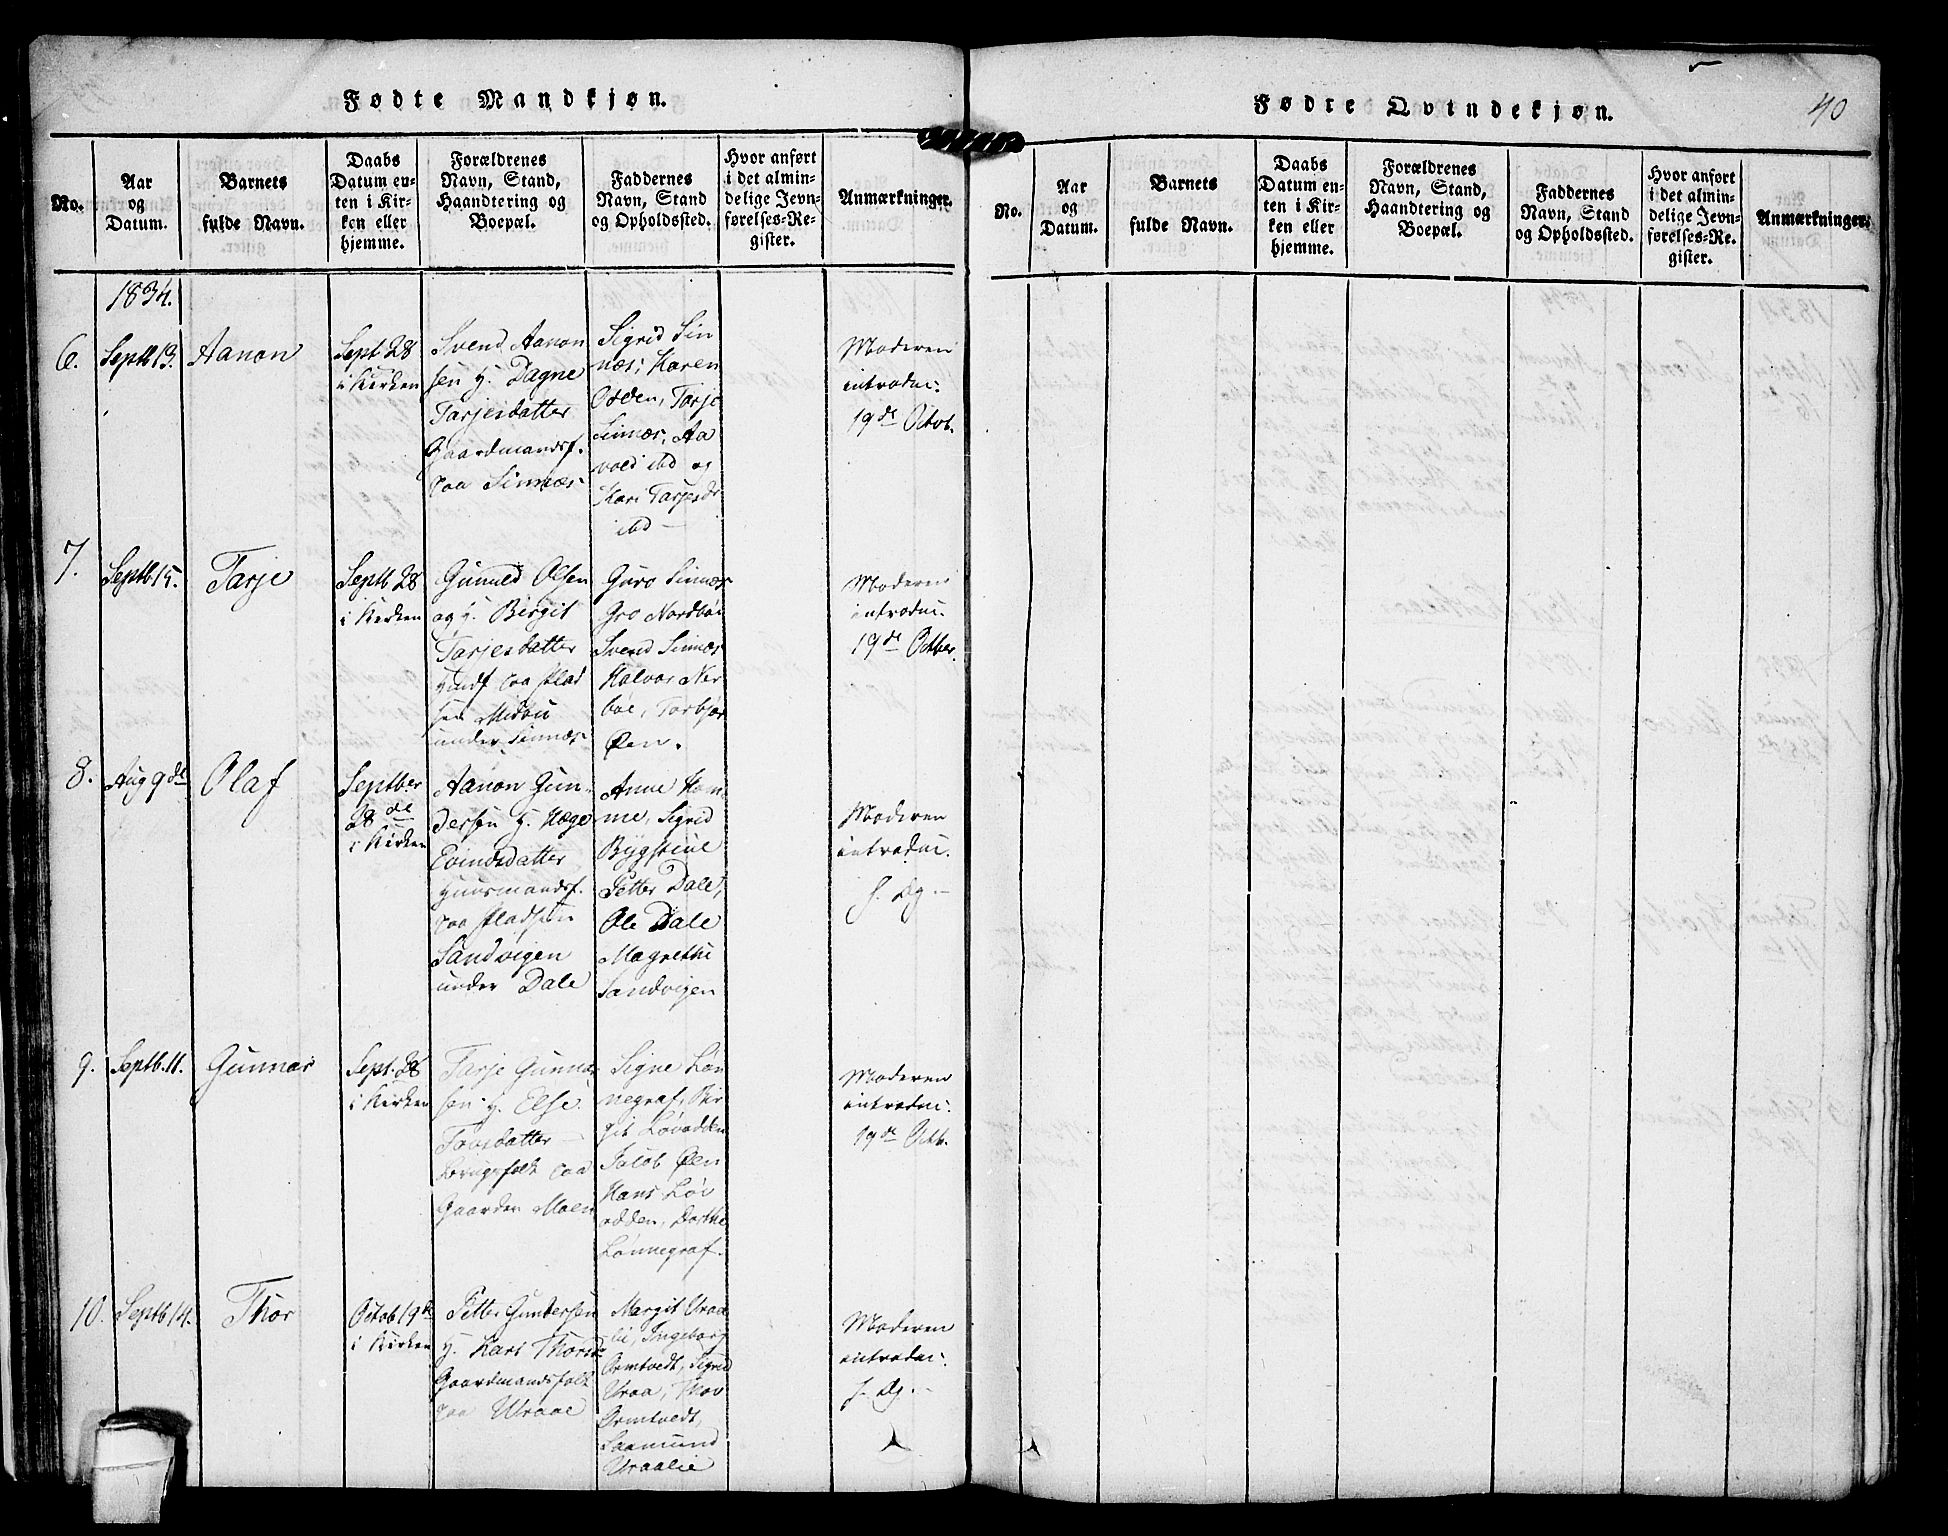 Fødte Mandkjøn.
No.
Aar
og
Datum.
Barnets
fulde Navn.
Daabs
Datum en-
ten i Kir-
ken eller
hjemme.
Forældrenes
Navn, Stand,
Haandtering og
Boepæl.
Faddernes
Navn, Stand
og Opholdssted.
Hvor anført
i det almin-
delige Jevn-
førelses-Re-
gister.
Anmærkninger.
1834.
6.
Septb 13.
Aanon
Sept 28
i Kirken
Svend Aanon
sen H. Dagne
Tarjesdatter
Gaardmandsf.
paa Sinnæs
Sigrid Sin
næs; Karen
Odden, Tarje
Sinnæs, Aa
vold ibd og
Kari Tarjesdr
ibd —
Moderen
introduc:
19de Octob.
7.
Septb 15.
Tarje
Septb 28
i Kirken
Gunuld Olsen
og H. Birgit
Tarjesdatter
Huusf paa Plad
sen Midbu
under Sinnæs
Guro Sinnæs
Gro Nordbøe
Svend Sinnæs
Halvor Ner
boe, Torbjør
Øen.
Moderen
introduc.
19de Octber.
8.
Aug 9de
Olaf
Septber
28de
i Kirken
Aanon Gun-
dersen H. Hæge
Evindsdatter
Huusmandsf.
paa Pladsen
Sandvigen
under Dale
Anne Hom
me, Sigrid
Bygstine
Petter Dale,
Ole Dale
Magrethe
Sandvigen
Moderen
introduc.
s. Dg. —
9.
Septb. 11.
Gunnar
Sept. 28
i Kirken
Tarje Gunnar
sen H. Else
Tovsdatter —
Brugsfolk paa
Gaarden Moen
Signe Løn
negraf, Bir
git Løvodden
Jacob Øen
Hans Løv
odden, Dorthe
Lønnegraf.
Moderen
introduc:
19de Octb.
10.
Septb 14.
Thor
Octob 19de
i Kirken
Petter Gundersen
H. Kari Thorsdr
Gaardmandsfolk
paa Uraae
Margit Uraa
lie, Ingeborg
Ormtvedt, Sigrid
Uraa, Thov
Ormtvedt,
Saamund
Uraalie
Moderen
introduc.
s. Dg. —
Fødte Qvindekjøn.
40
No.
Aar
og
Datum.
Barnets
fulde Navn.
Daabs
Datum en-
ten i Kir-
ken eller
hjemme.
Forældrenes
Navn, Stand,
Haandtering og
Boepæl.
Faddernes
Navn, Stand
og Opholdssted.
Hvor anført
i det almin-
delige Jevn-
førelses-Re-
gister.
Anmærkninger.